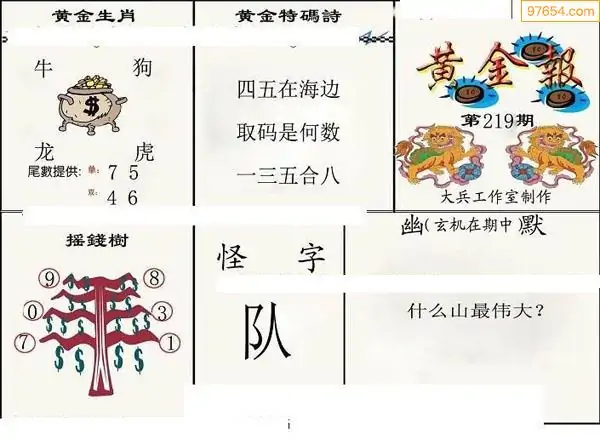 97654.com
黄金生肖
牛 狗
$
龙 虎
尾數提供: 单: 7 5
双: 4 6
黄金特碼詩
四五在海边
取码是何数
一三五合八
黄金報
10
10
第219期
大兵工作室制作
摇錢樹
9 8
0 3
7 1
$ $ $ $ $ $ $ $
怪 字
队
幽(玄机在期中)默
什么山最伟大?
i